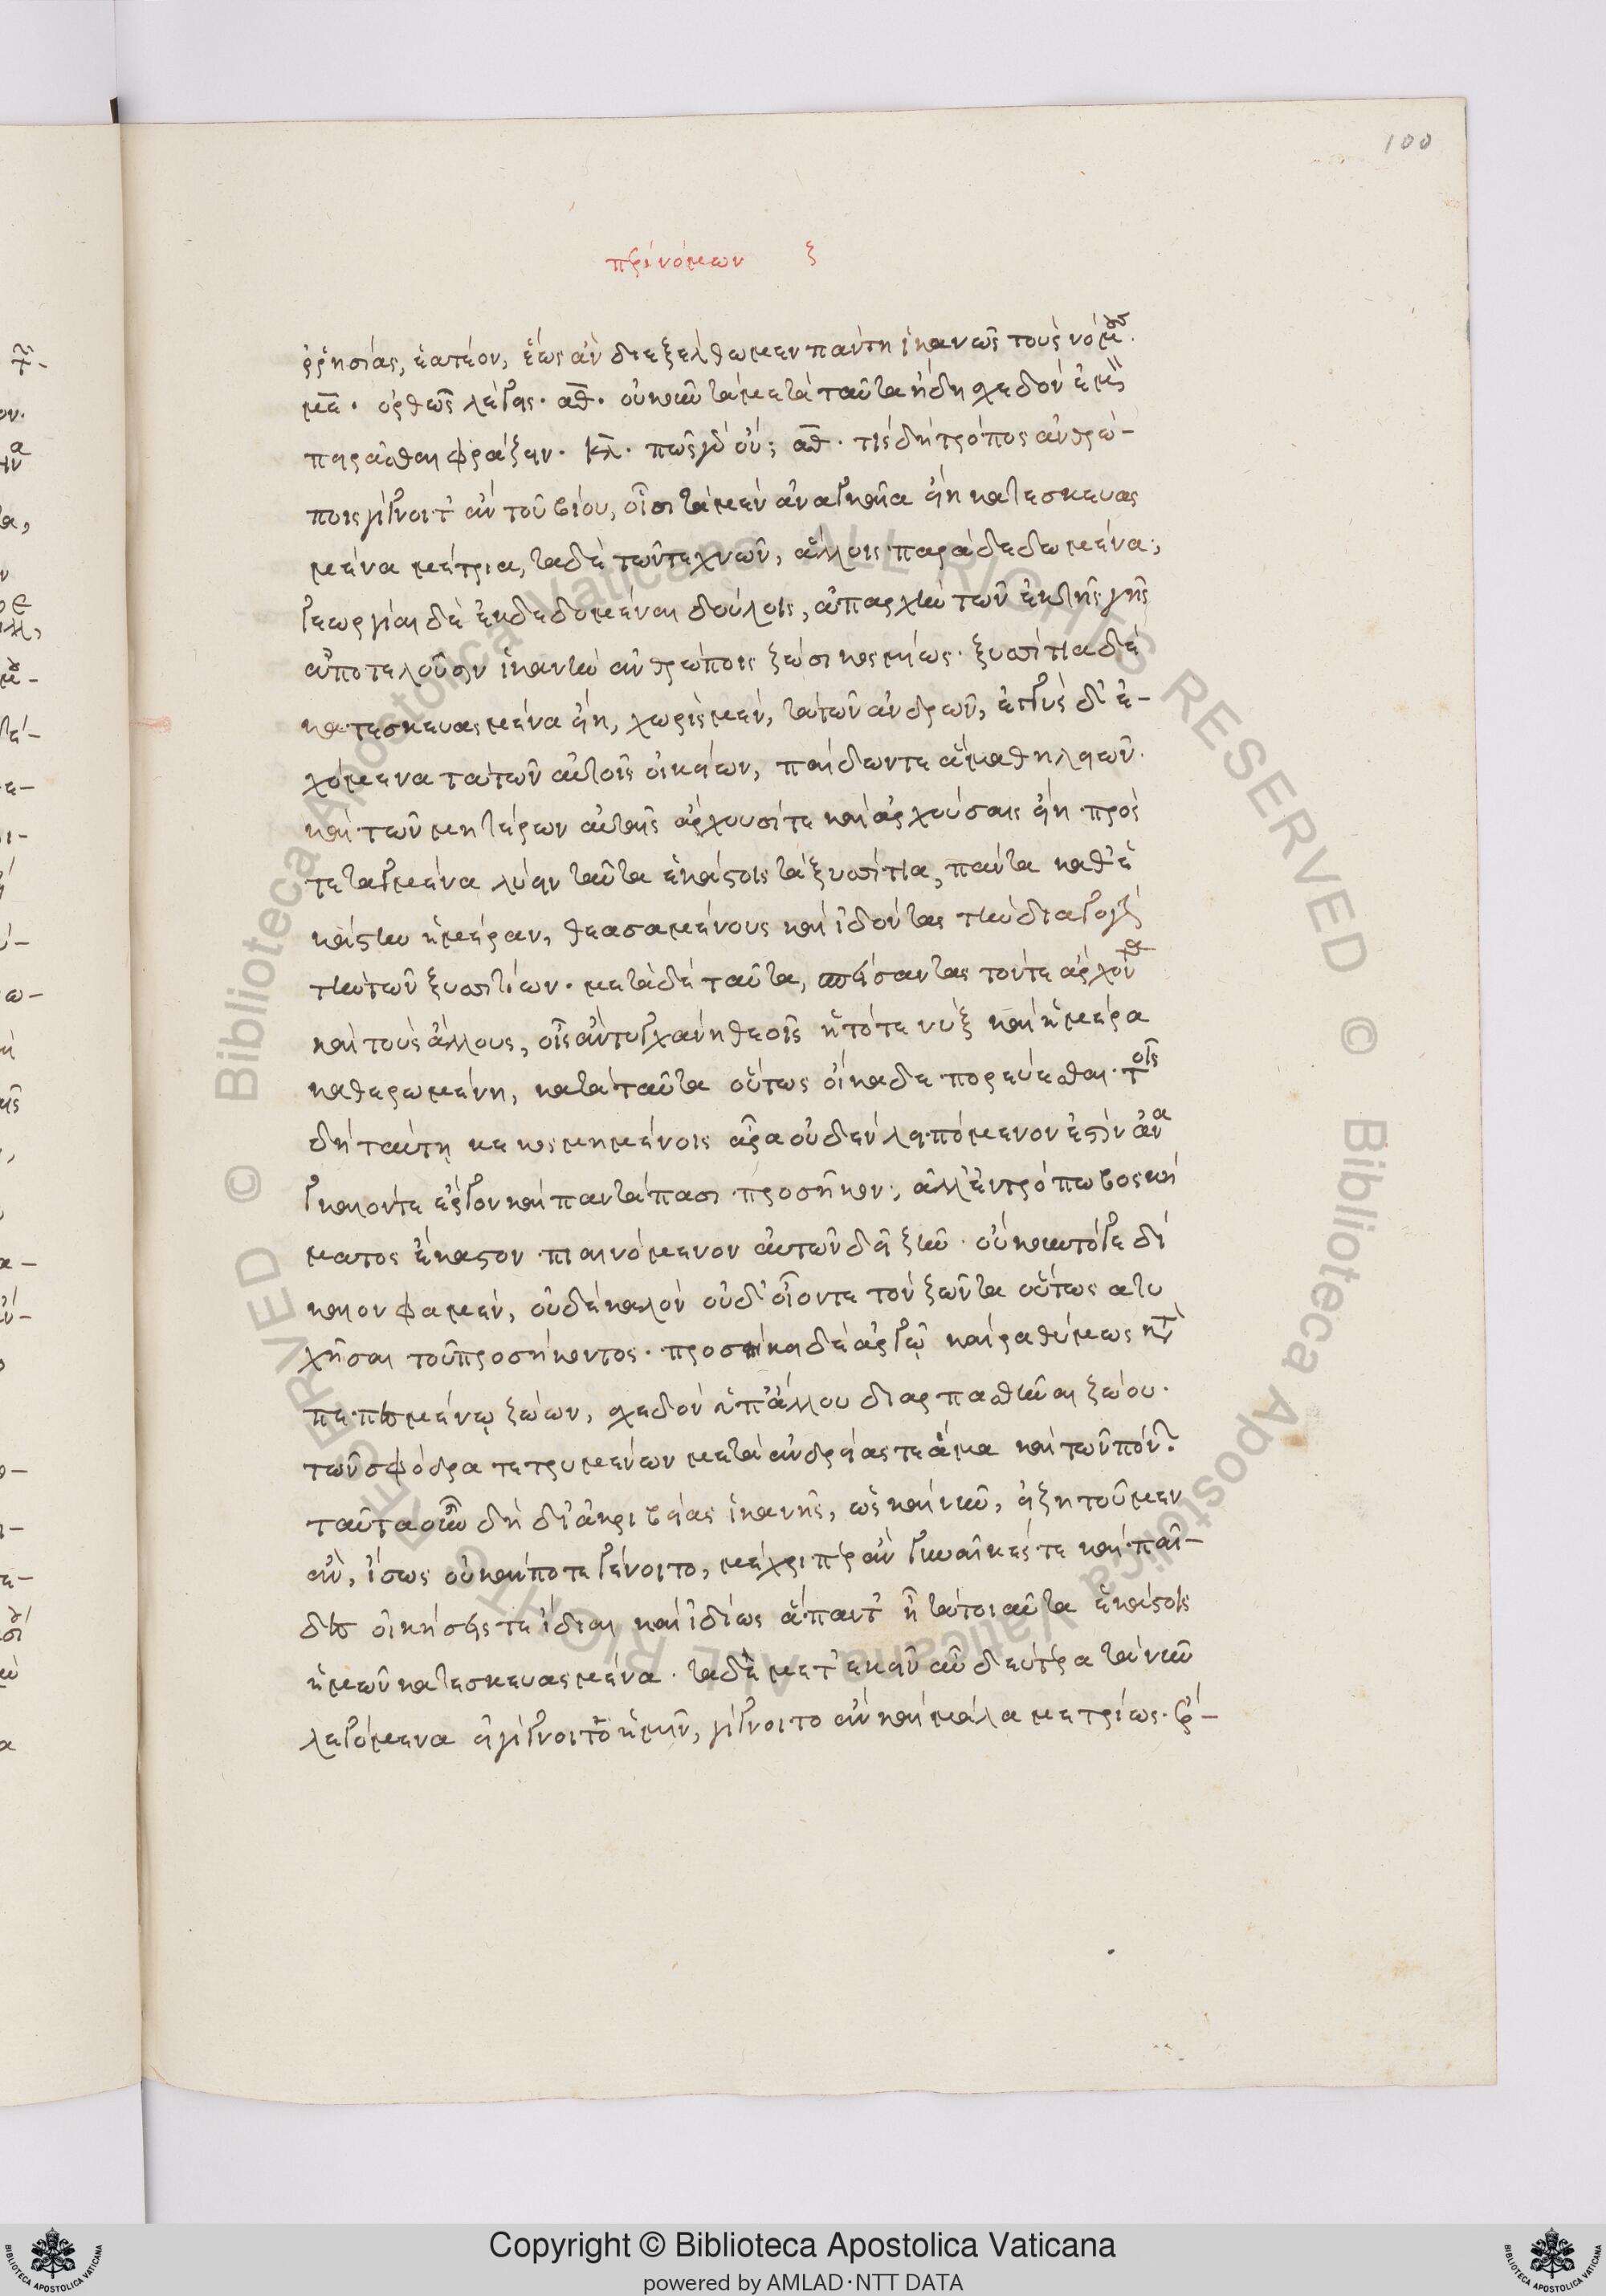 100
περὶ νόμων ζ
ρρησίας, ἐατέον, ἕως ἂν διεξέλθωμεν πάντη ἱκανῶς τοὺς νόμους.
με. ὀρθῶς λέγεις. αθ. οὐκοῦν τὰ μετὰ ταῦτα ἤδη σχεδὸν ἐμοὶ
πειρᾶσθαι φράζειν. κλ. πῶς γὰρ οὔ; αθ. τίς δὴ τρόπος ἀνθρώ-
ποις γίγνοιτ' ἂν τοῦ βίου, οἷσι τὰ μὲν ἀναγκαῖα εἴη κατεσκευας
μένα μέτρια, τὰ δὲ τῶν τεχνῶν, ἄλλοις παραδεδωμένα;
γεωργίαι δὲ ἐκδεδομέναι δούλοις, ἀπαρχὴν τῶν ἐκ τῆς γῆς
ἀποτελοῦσιν ἱκανὴν ἀνθρώποις ζώσι κοςμίως. ξυσσίτια δὲ
κατεσκευασμένα εἴη, χωρὶς μὲν, τὰ τῶν ἀνδρῶν, ἐγγὺς δ' ἐ-
χόμενα τὰ τῶν αὐτοῖς οἰκείων, παίδων τε ἅμα θηλειῶν.
καὶ τῶν μητέρων αὐταῖς ἄρχουσί τε καὶ ἀρχούσαις εἴη προς
τεταγμένα λύειν ταῦτα ἑκάστοις τὰ ξυσσίτια, πάντα καθ' ἑ
κάστην ἡμέραν, θεασαμένους καὶ ἰδόντας τὴν διαγωγὴν
τὴν τῶν ξυσσιτίων. μετὰ δὲ ταῦτα, σπείσαντας τόν τε ἄρχοντα
καὶ τοὺς ἄλλους, οἷς ἂν τυγχάνη θεοῖς ἡ τότε νὺξ καὶ ἡμέρα
καθερωμένη, κατὰ ταῦτα οὕτως οἴκαδε πορεύεσθαι. τοῖς
δὴ ταύτη κεκοςμημένοις ἆρα οὐδὲν λειπόμενον ἐστὶν ἀνα
γκαῖόν τε ἔργον καὶ παντάπασι προσῆκον; ἀλλ' ἐν τρόπω βοσκή
ματος ἕκαστον πιαινόμενον αὐτῶν δεῖ ζῆν. οὔκουν τό γε δί
καιον φαμὲν, οὐδὲ καλὸν οὐδ' οἷόν τε τὸν ζῶντα οὕτως ἀτυ
χῆσαι τοῦ προσήκοντος. προσήκει δὲ ἀργῷ καὶ ῥαθύμως κατα
πεπιασμένῳ ζώων, σχεδὸν ὑπ' ἄλλου διαρπασθῆναι ζώου.
τῶν σφόδρα τετρυμένων μετὰ ἀνδρείας τε ἅμα καὶ τῶν πόνων.
ταῦτα οὖν δὴ δι' ἀκριβείας ἱκανῆς, ὡς καὶ νῦν, εἰ ζητοῦμεν
ἂν, ἴσως οὐκ ἄν ποτε γένοιτο, μέχρι περ ἂν γυναῖκές τε καὶ παῖ-
δες οἰκήσεις τε ἴδιαι καὶ ἰδίως ἅπαντ' ᾖ τὰ τοιαῦτα ἑκάστοις
ἡμῶν κατεσκευασμένα. τὰ δὲ μετ' ἐκεῖν' αὖ δεύτερα τὰ νῦν
λεγόμενα εἰ γίγνοιτο ἡμῖν, γίγνοιτο ἂν καὶ μάλα μετρίως. ἔρ-
Copyright © Biblioteca Apostolica Vaticana
powered by AMLAD·NTT DATA